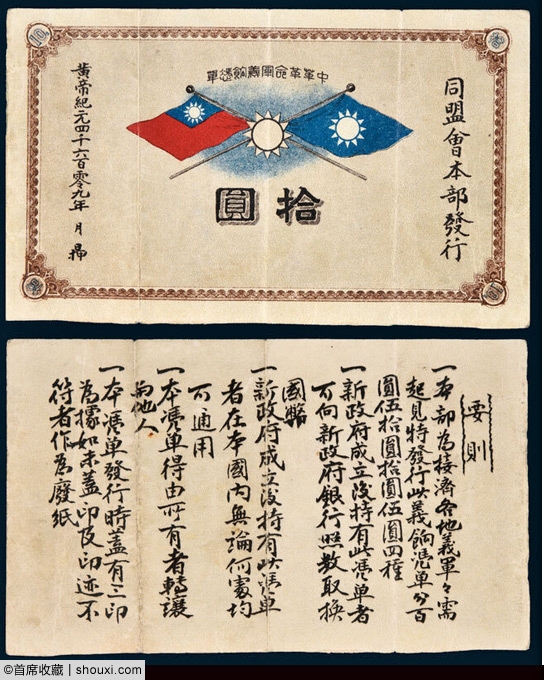 中華革命軍義餉憑單
同盟會本部發行
拾圓
黃帝紀元四千六百零九年 月
10
10
要則
一本部為接濟各地義軍々需
起見特發行此義餉憑單分百
圓伍拾圓拾圓伍圓四種
一新政府成立後持有此憑單者
可向新政府銀行照數取換
國幣
一新政府成立後持有此憑單
者在本國內無論何處均
可通用
一本憑單得由所有者轉讓
與他人
一本憑單發行時蓋有三印
為據如未蓋印及印迹不
符者作為廢紙
©首席收藏 | shouxi.com